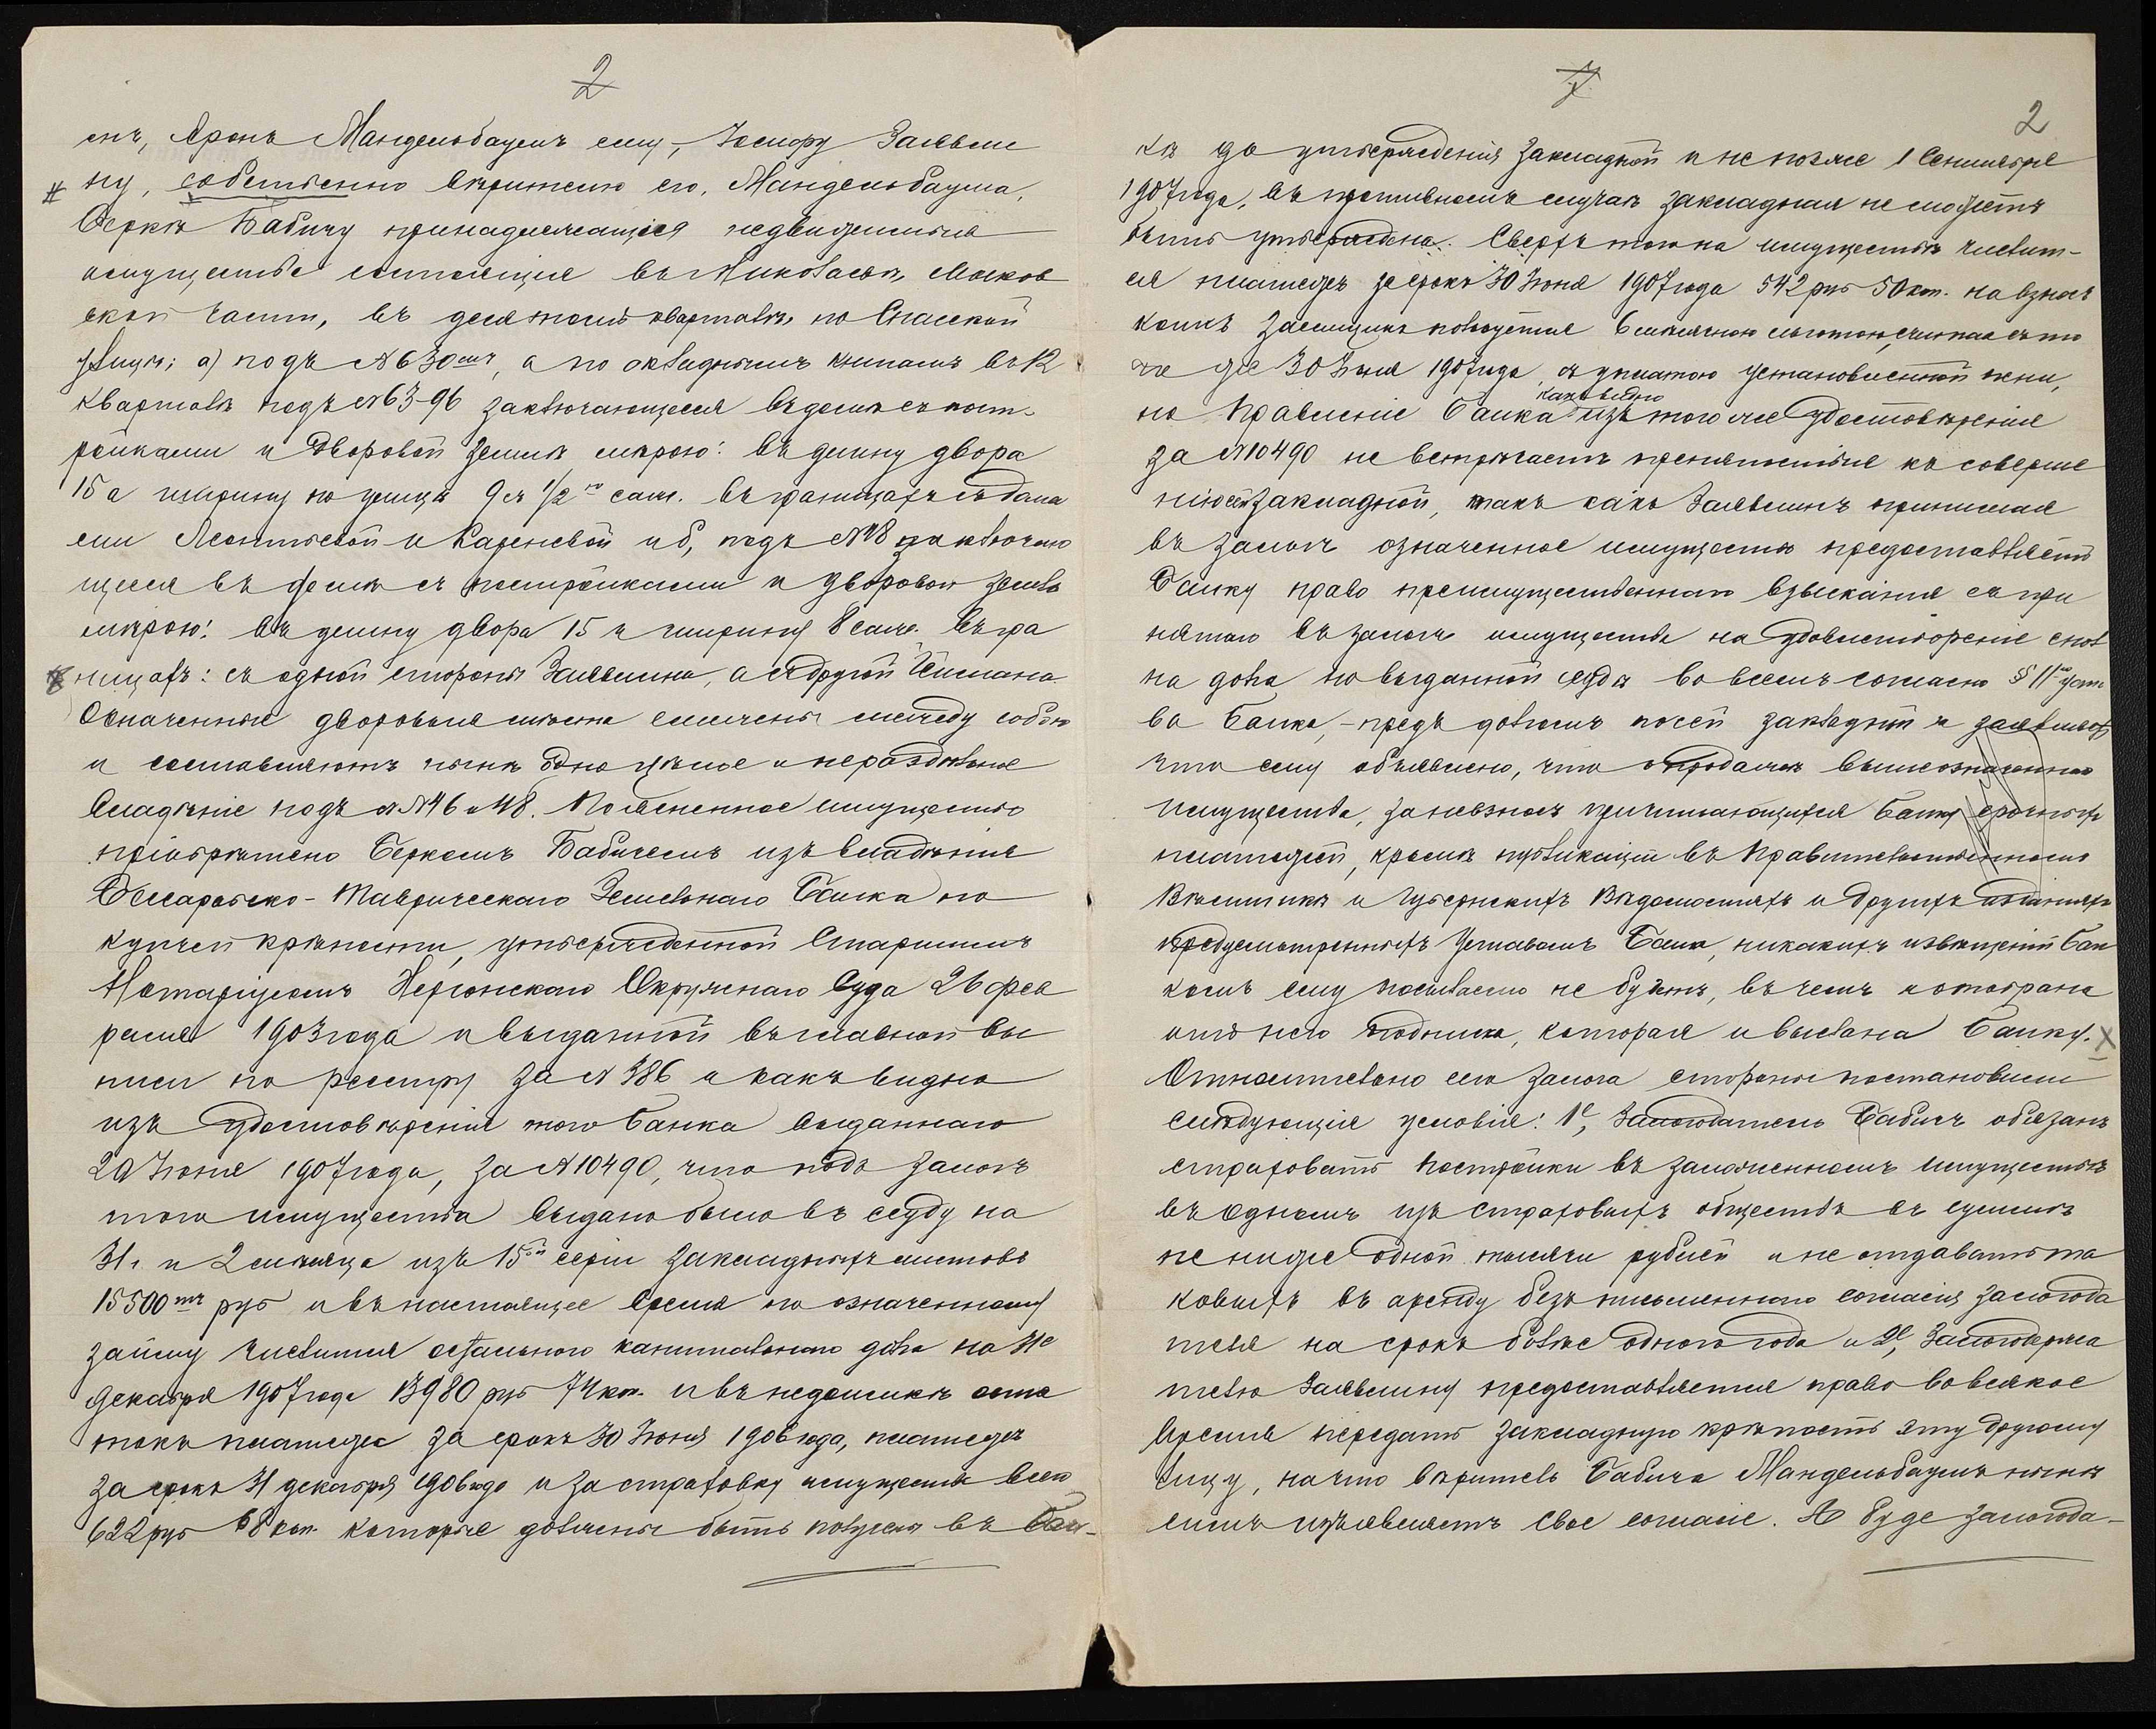 2
онъ, Аронъ Мандельбаумъ ему, Іосифу Заявли
ну, собственно вѣрителю его, Мандельбаума,
Беркѣ Бабичу принадлежащіея недвижимыя
имущества состоящія въ Николаевѣ, Москов
ской части, въ девятомъ кварталѣ, по Спасской
улицѣ; а) подъ №
кварталѣ подъ № заключающееся въ домѣ съ пост-
ройками и дворовой землѣ, мѣрою: въ длину двора
15 а ширину по улицѣ 9 съ 1/2ю саж. въ границахъ съ дома
ми Леонтьевой и и б, подъ №48 заключаю
щееся въ домѣ съ постройками и дворовой землѣ
мѣрою: въ длину двора 15 и ширину 8 саж. въ гра
ницахъ: съ одной стороны Заявлина, а съ другой
Означенныя дворовыя мѣста смежены между собою
и составляютъ нынѣ одно цѣлое и нераздѣльное
владѣніе подъ №№46 и 48. Поясненное имущество
пріобрѣтено Беркомъ Бабичемъ изъ владѣнія
Бессарабско-Таврическаго Земельнаго Банка по
купчей крѣпости, утвержденной Старшимъ
Нотаріусомъ Херсонскаго Окружнаго Суда 26 фев
раля 1903 года и выданной въ главной вы
писи по реестру за № 386 и какъ видно
изъ удостовѣренія того Банка выданнаго
20 Іюня 1907 года, за №10490, что подъ залогъ
того имущества выдано было въ ссуду на
31 г. и 2 мѣсяца изъ 15ой серіи закладныхъ листовъ
15500тъ руб и въ настоящее время по означенному
займу числится остальнаго капитальнаго долга на 31е
декабря 1907 года 13980 руб 74 коп. и въ недоимкѣ оста
токъ платежа за срокъ 30 Іюня 1906 года, платежъ
за срокъ 31 декабря 1906 года и за страховку имущества всего
622 руб 68 коп. которые должны быть получены въ Бан-
7
2
кѣ до утвержденія закладной и не позже 1 Сентября
1907 года, въ противномъ случаѣ закладная не можетъ
быть утверждена. Сверхъ того на имуществѣ числит-
ся платежъ за срокъ 30 Іюня 1907 года 542 руб 50 коп. на взносъ
коихъ заемщикъ пользуется 6 мѣсячною льготою, считая съ то
го же 30 Іюня 1907 года, съ уплатою установленной пени,
какъ видно
но Правленіе Банка изъ того же удостовѣренія
за №10490 не встрѣчаетъ препятствія къ соверше
нію сей закладной, такъ какъ Заявлинъ принимая
въ залогъ означенное имущество предоставляетъ
Банку право преимущественнаго взысканія съ при
нятаго въ залогъ имущества на удовлетвореніе спол
на долга по выданной ссудѣ во всемъ согласно § 11го уста
ва Банка,- предъ долгомъ по сей закладной и заявляетъ
что ему объявлено, что о продажѣ вышеозначеннаго
имущества, за невзносъ причитающихся Банку срочныхъ
платежей, кромѣ публикаціи въ Правительственномъ
Вѣстникѣ и Губернскихъ Вѣдомостяхъ и другихъ изданіяхъ
предусмотренныхъ Уставомъ Банка, никакихъ извѣщеній Бан
комъ ему посылаемо не будетъ, въ чемъ и отобрана
отъ него подписка, которая и выслана Банку.
Относительно сего залога стороны постановили
слѣдующія условія: 1е, Залогодатель Бабичъ обязанъ
страховать постройки въ заложенномъ имуществѣ
въ одномъ изъ страховыхъ обществъ въ суммѣ
не ниже одной тысячи рублей и не отдавать та
ковыхъ въ аренду безъ письменнаго согласія залогода
теля на срокъ болѣе одного года и 2е, Залогодержа
телю Заявлину предоставляется право во всякое
время передать закладную крѣпость эту другому
лицу, на что вѣритель Бабича Мандельбаумъ нынѣ
симъ изъявляетъ свое согласіе. А буде залогода-